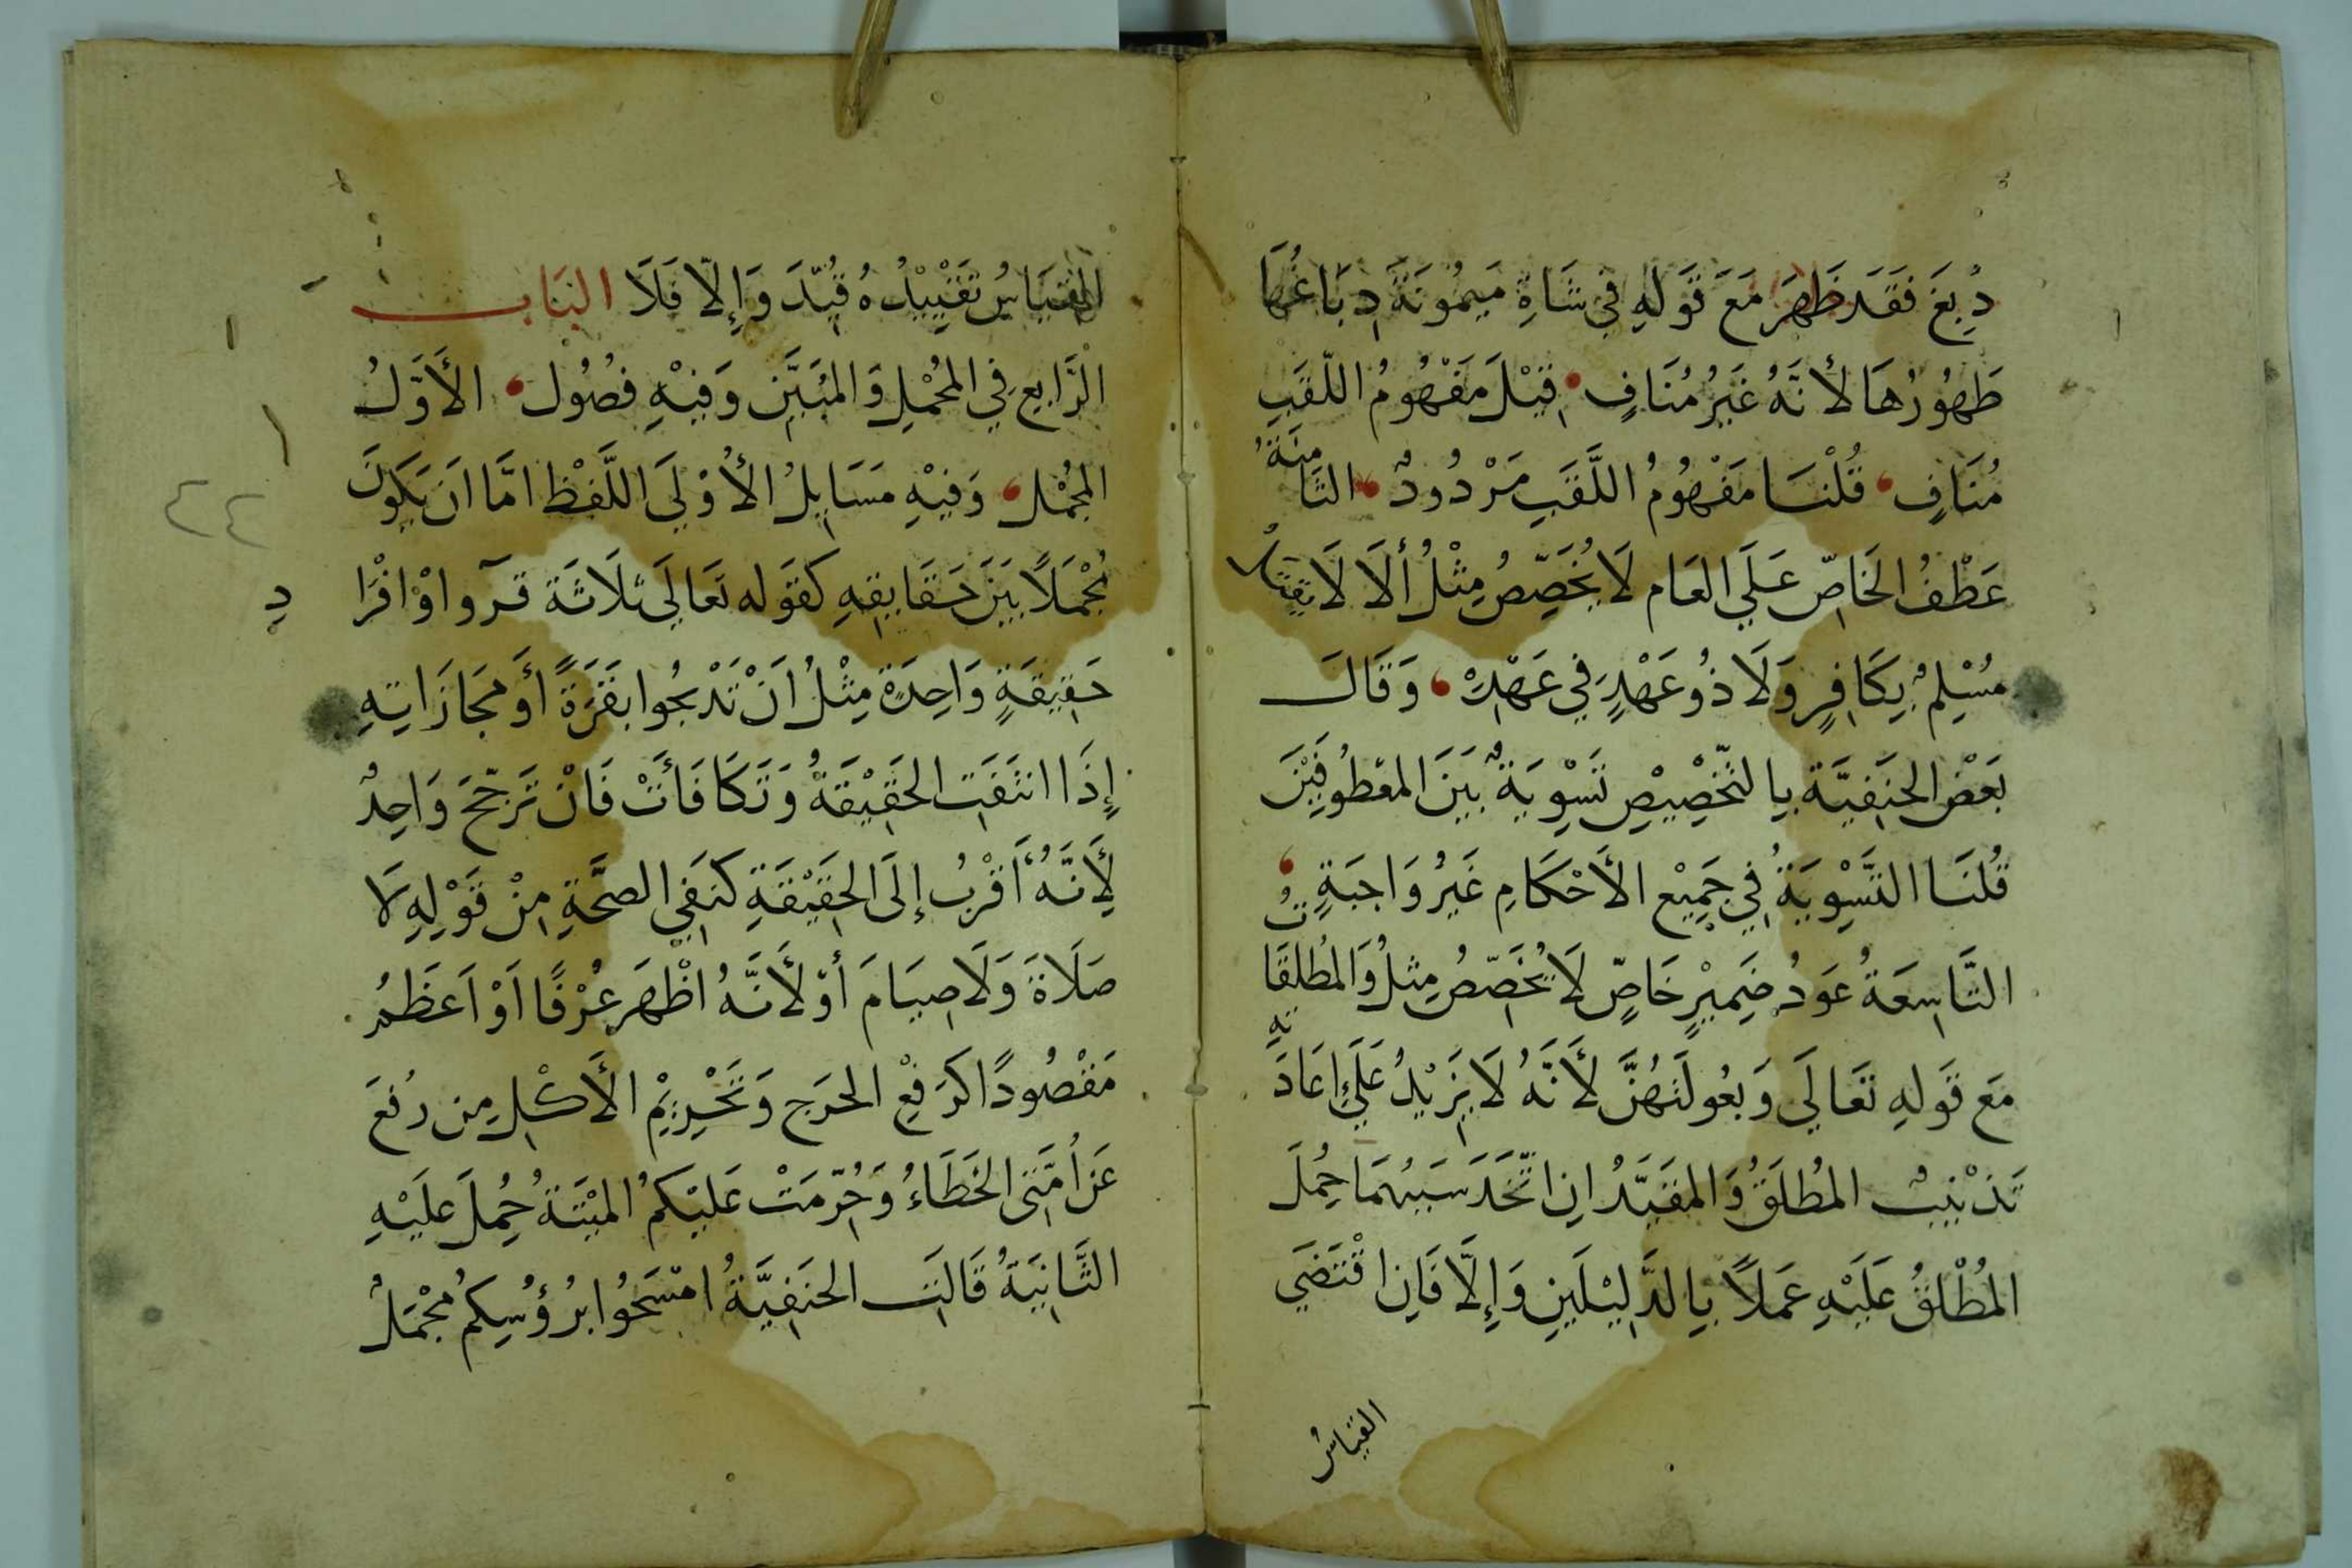 دُبِغَ فَقَد ظَهَرَ مَعَ قَولِهِ فِي شَاةِ مَيمُونَةَ دِبَاغُهَا
طَهُورُهَا لأنَّهُ غَيرُ مُنَافٍ قِيْلَ مَفْهُومُ اللّقَبِ
مُنَافٍ قُلْنَا مَفْهُومُ اللَّقَبِ مَرْدُودٌ الثَّامِنَةُ
عَطْفُ الخَاصِّ عَلَى العَام لَا يُخَصِّصُ مِثْلُ ألَا لَا يُقْتَلُ
مُسْلِمٌ بِكَافِرٍ وَلَا ذُو عَهْدٍ فِي عَهْدِهْ وَقَالَ
بَعْضُ الحَنَفِيَّة بِالتَّخْصِيْصِ تَسْوِيَةً بَيَنَ المعْطُوفَيْنَ
قُلنَا التَّسْوِيَةُ فِي جَمِيْعِ الأَحْكَامِ غَيرُ وَاجِبَةٍ
التَّاسِعَةُ عَودُ ضَمِيْرٍ خَاصٍّ لَا يُخَصِّصُ مِثلُ وَالمُطَلَّقَاتُ
مَع قَولِهِ تَعَالَى وَبُعُولَتهُنَّ لأَنَّهُ لَا يَزِيْدُ عَلَى إعَادَتِهِ
تَذْنِيبٌ المُطلَقُ وَالمقَيَّدُ اِن اتَّحَدَ سَبَبُهمَا حُمِلَ
المُطْلقُ عَلَيْهِ عَملاً بِالدَّلِيْلَينِ وَإِلَّا فَاِن اقْتَضَي
القيَاسُ
القيَاسُ تَقْيِيْدُهُ قُيِّدَ وَإِلّا فَلَا البَاب
الرَّابِع فِي المجْمَلِ وَالمُبَيَّنِ وَفِيْهِ فصُوُل الأَوَّلُ
المجْمَلُ وَفِيْهِ مَسَايِلُ الأُوْلَى اللَّفظ امَّا اَن يَكَونَ
مُجْمَلًا بَيَنَ حَقَايقِهِ كَقَوله تَعَالَى ثَلَاثَة قرَوا وْ افْرَا
حَقِيقَةٍ وَاحِدَةٍ مِثْلُ اَنْ تَذْبَحُوا بَقَرَةً أَو مَجَازَاتِهِ
إِذَا انتَفَتِ الحَقِيْقَةُ وَتَكَافَأتْ فَانْ تَرَجّحَ وَاحِدٌ
لِأَنَّهُ أَقْرَبُ إلَى الحَقِيْقَةِ كَنَفِي الصحَّةِ مِنْ قَوْلِهِ لَا
صَلَاةَ وَلَا صِيَامَ أوْ لأَنَّهُ اظْهَرَ عُرْفًا اَوْ اَعظَمُ
مَقْصُودًا كَرَفعِ الحَرَجِ وَتَحْرِيْمِ الأَكْلِ مِن رُفعَ
عَن اُمَّتِى الخَطَاءُ وَحُرِّمَتْ عَليْكمُ المَيْتَةُ حُمِلَ عَلَيْهِ
الثَّانِيَةُ قَالَتِ الحَنَفِيَّةُ امْسَحُوا بِرُؤُسِكمْ مُجْمَلٌ